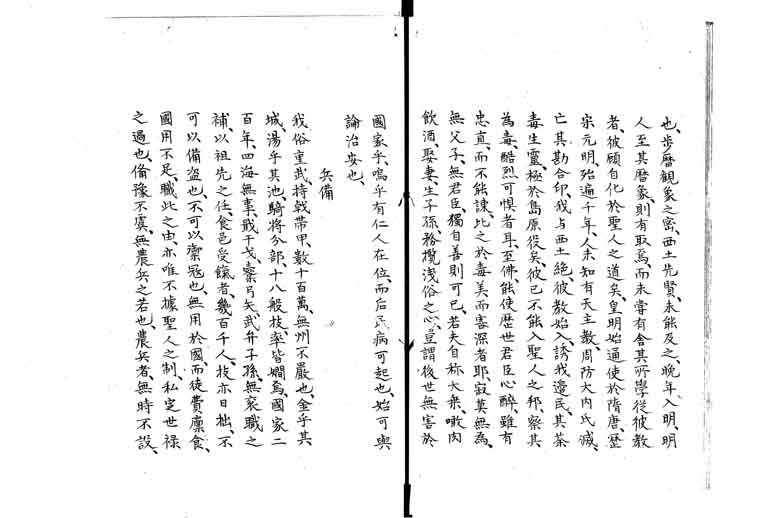 也、步曆觀象之密、西土先賢、未能及之、晚年入明、明
人至其曆象、則有取焉、而未嘗有舍其所學從彼教
者、彼顧自化於聖人之道矣、皇明始通使於隋唐、歷
宋元明、殆遍千年、人未知有天主教、周防大内氏滅、
亡其勘合印、我与西土絕、彼教始入、誘我邊民、其荼
毒生靈、極於島原役矣、彼已不能入聖人之邦、察其
為毒、酷烈可惧者耳、至佛能使歷世君臣心醉、雖有
忠直、而不能諫、比之於毒美而害深者耶、寂莫無為、
無父子、無君臣、獨自善則可已、若夫自称大乘、噉肉
飲酒、娶妻、生子孫、務攬浅俗之心、豈謂後世無害於
國家乎、嗚乎有仁人在位而后民病可起也、始可與
論治安也、
兵備
我俗重武、持戟帶甲、數十百萬、無州不嚴也、金乎其
城、湯乎其池、騎將分部、十八般技、率皆嫺焉、國家二
百年、四海無事、戢干戈、櫜弓矢、武弁子孫、無褻職之
補、以祖先之任、食邑受餼者、幾百千人、技亦日拙、不
可以備盗也、不可以禦寇也、無用於國而徒費廩食、
國用不足、職此之由、亦唯不據聖人之制、私定世禄
之過也、備豫不虞、無農兵之若也、農兵者、無時不設、